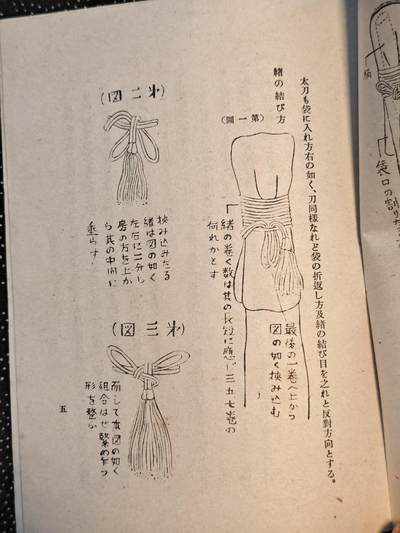 太刀も袋に入れ方右の如く、刀同様なれと袋の折返し方及緒の結び目を之れと反對方向とする。
緒の結び方
(第一圖)
最後の一巻へ上から
図の如く挟み込む
緒の巻く数は其の長短に應じ三五七巻の
何れかとす
(第二図)
挟み込みたる
緒は図の如く
左右に二分し
房の方を上か
ら其の中間に
垂らす、
(第三図)
而して本図の如く
組合はせ緊め乍つ
形を整ふ
五
袋口の割り